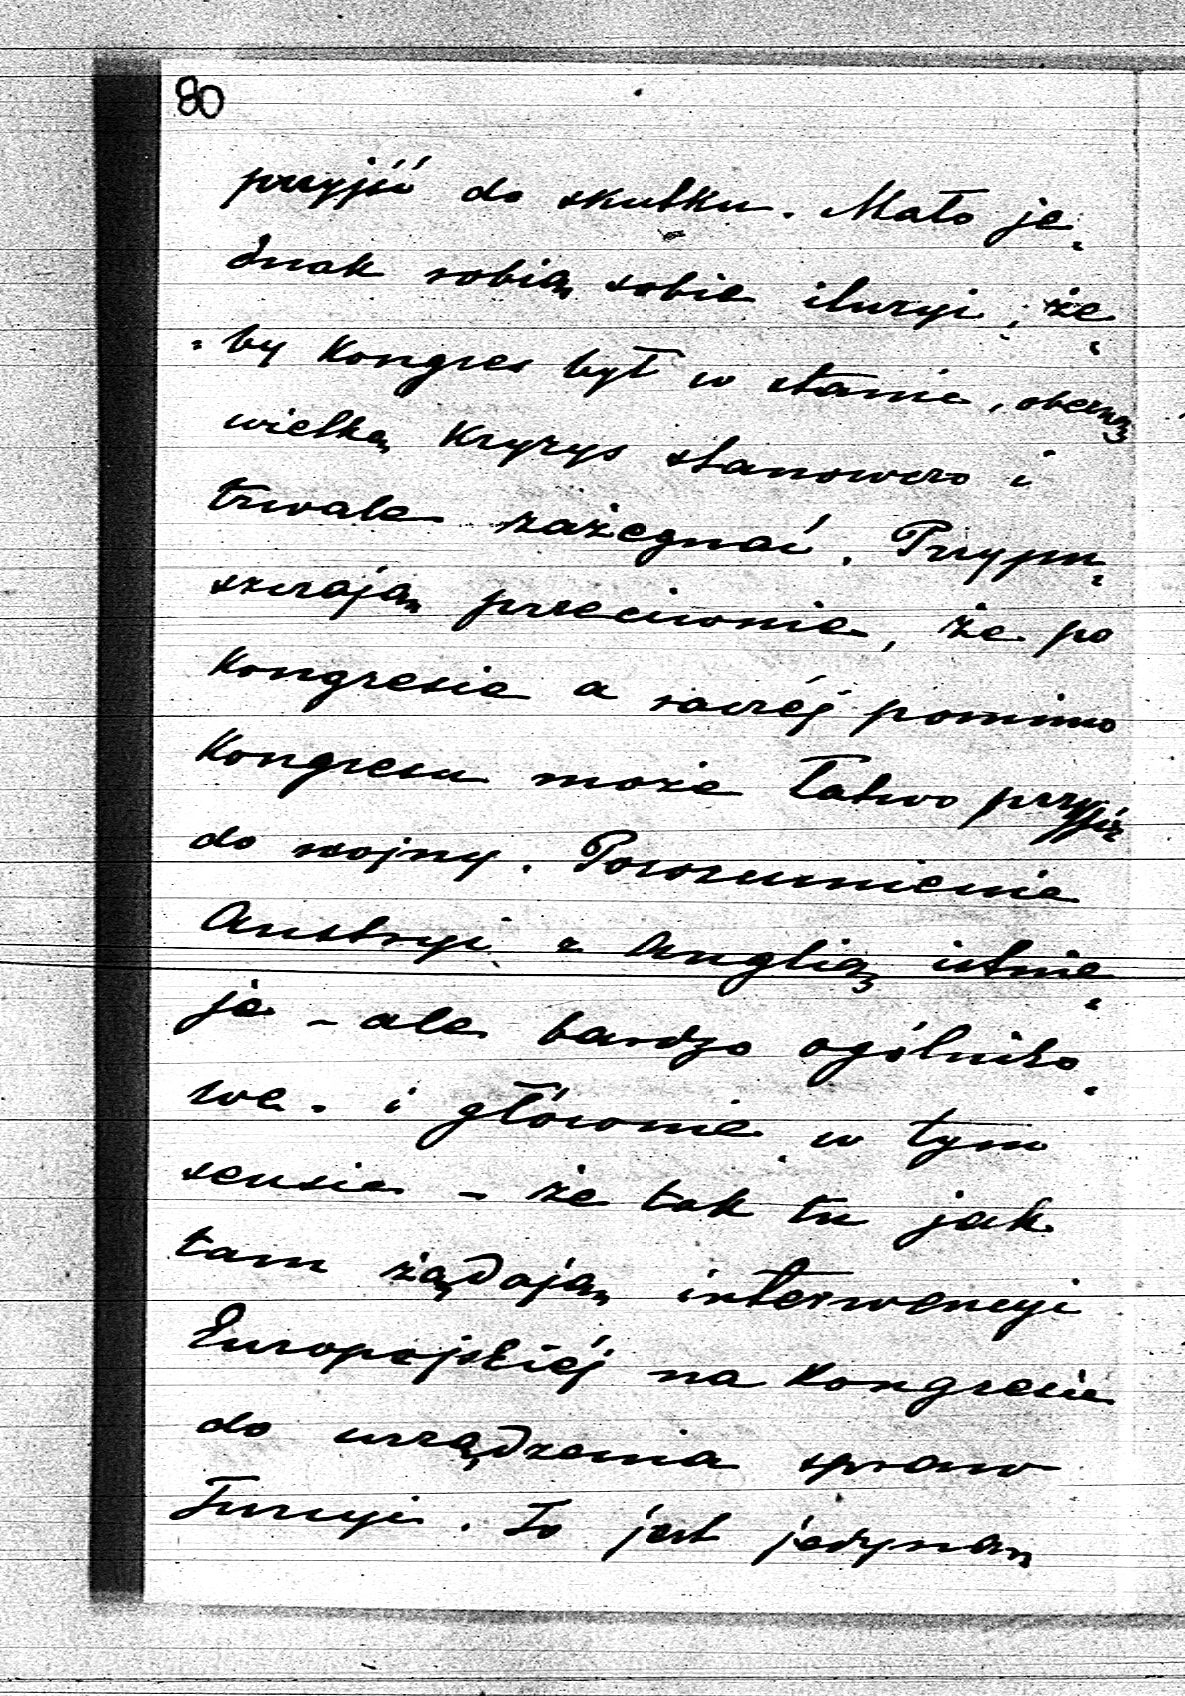 80
przyjść do skutku. Mało je„
dnak robią sobie iluzyi, że„
„by Kongres był w stanie, obecną
wielką Kryzys stanowczo i
trwale zażegnać. Przypu„
szczają przeciwnie, że po
Kongresie a raczéj pomimo
Kongresu może łatwo przyjść
do wojny. Porozumienie
Austryi z Anglią istnie„
je – ale bardzo ogólniko„
we. i głównie w tym
sensie – że tak tu jak
tam żądają interwencyi
Europejskiéj na Kongresie
do urządzenia spraw
Turcyi. To jest jedyną